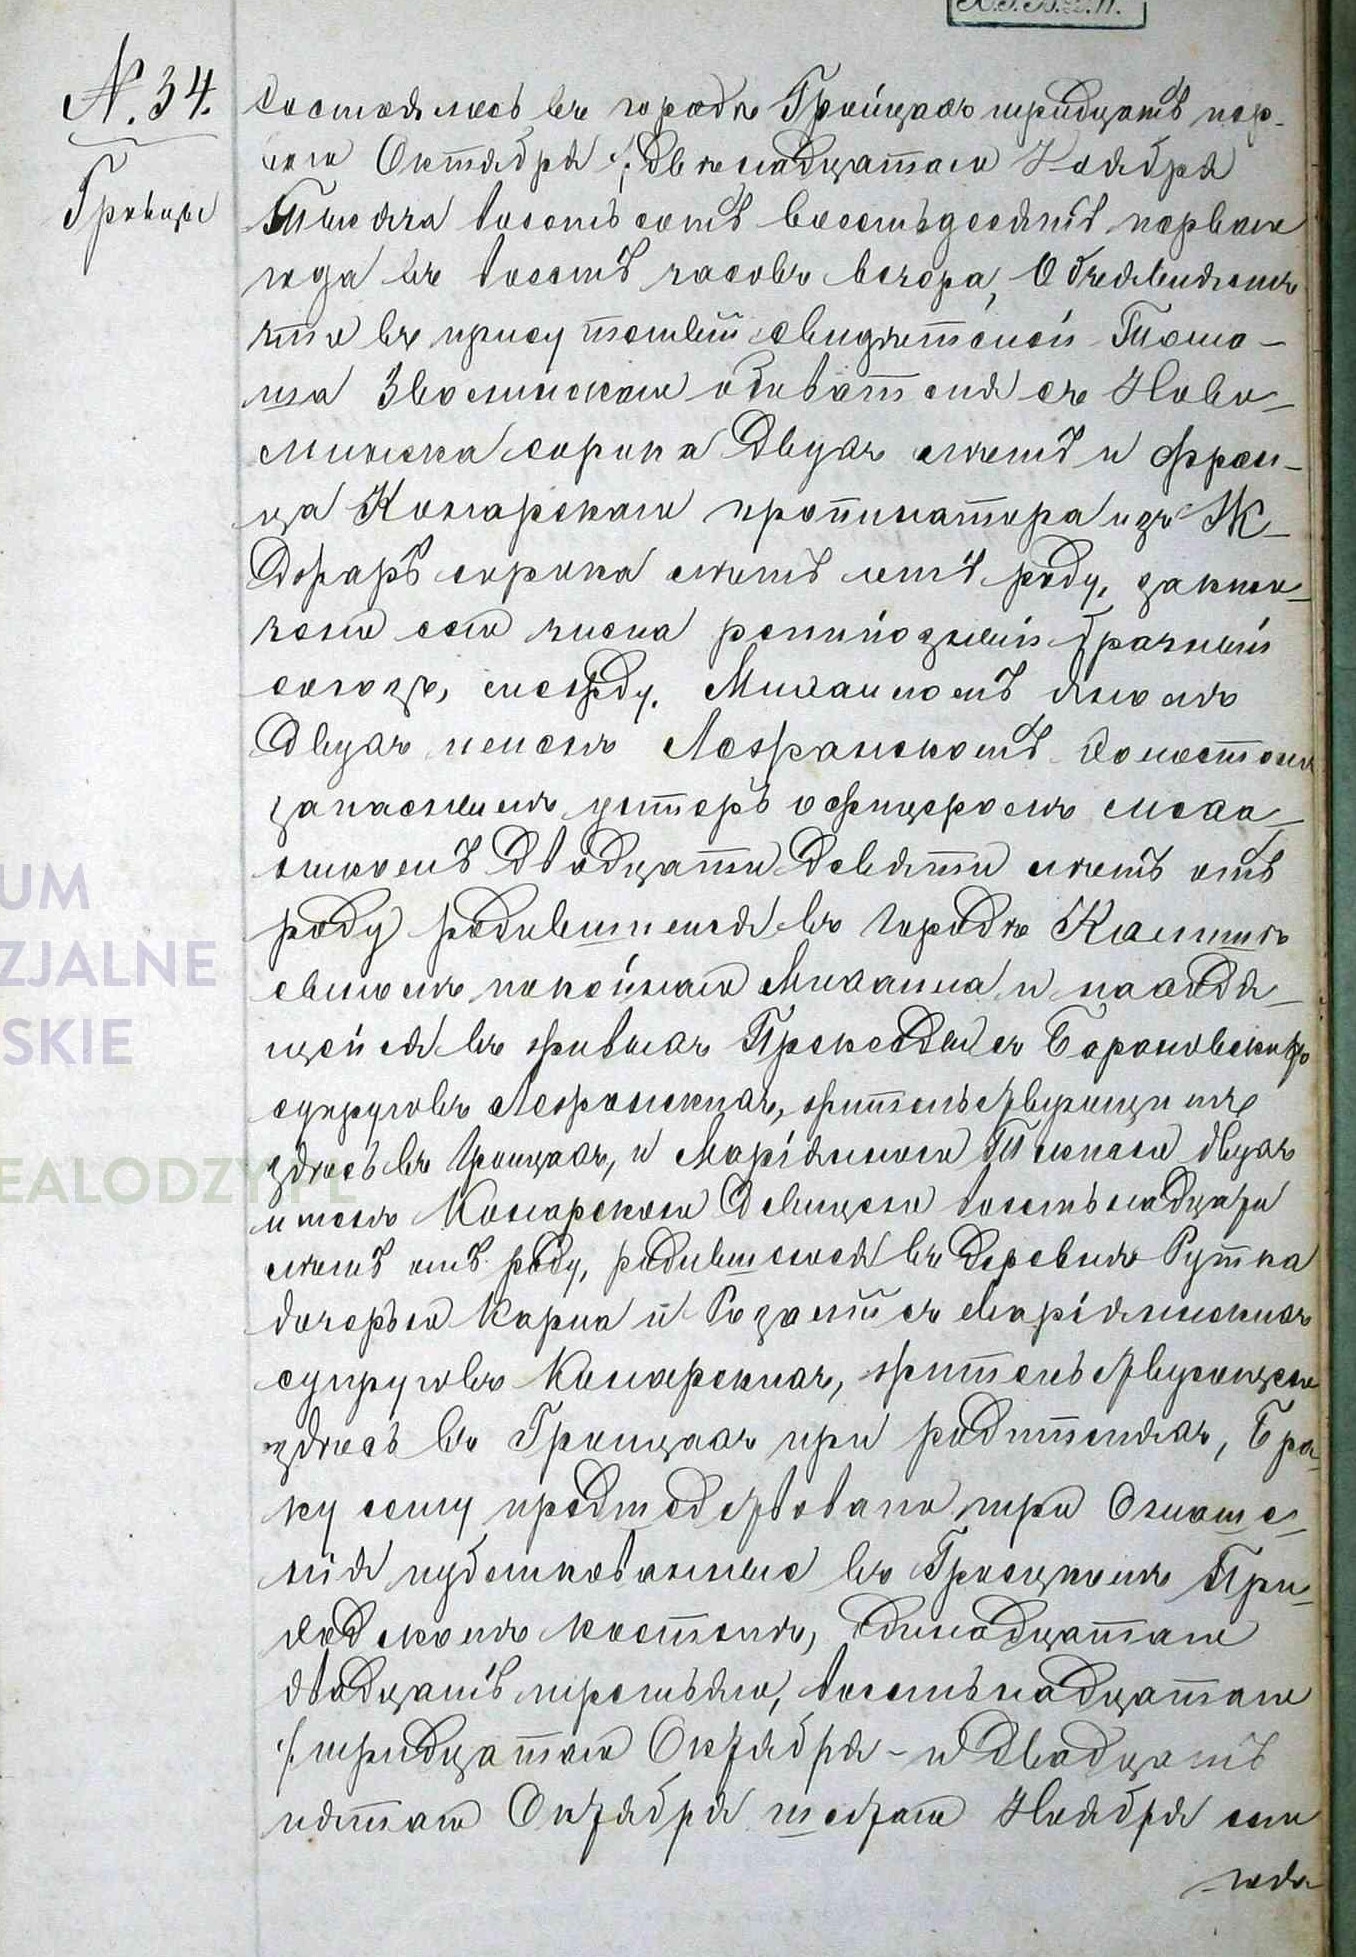 № 34.
Гройцы
Состоялось въ городѣ Гройцахъ тридцать пер-
ваго Октября /двѣнадцатаго Ноября
Тысяча восемьсотъ восемьдесятъ перваго
года въ восемь часовъ вечера, Объявляемъ
что въ присутствiи свидѣтелей Тома-
ша Зволинскаго обывателя съ Ново-
минска сорока двухъ лѣтъ и Фран-
ца Конарскаго пропинатора изъ
сорока лѣтъ отъ роду, заклю-
чено сего числа религiозный брачный
союзъ, между. Михаиломъ
двухъ именъ холостымъ
запаснымъ унтеръ офицеромъ
двадцати девяти лѣтъ отъ
роду родившимся въ городѣ
сыномъ покойнаго Михаила и находя-
щейся въ живыхъ Праксе́ды съ Барановскихъ
супруговъ жительствующимъ
здѣсь въ Гройцахъ, и Марiянною Теклею двухъ
именъ Конарскою девицею восемьнадцати
лѣтъ отъ роду, родившеюся въ деревнѣ Рутка
дочерью Карла и Розалiи съ Марiянскихъ
супруговъ Конарскихъ, жительствующею
здѣсь въ Гройцахъ при родителяхъ, Бра-
ку сему предшедствовало три Оглаше-
нiя публикованные въ Гроецкомъ При-
ходскомъ костелѣ, одинадцатаго
двадцать третьяго, восемьнадцатаго
/тридцатаго Октября - и двадцать
пятаго Октября шестаго Ноября сего
года